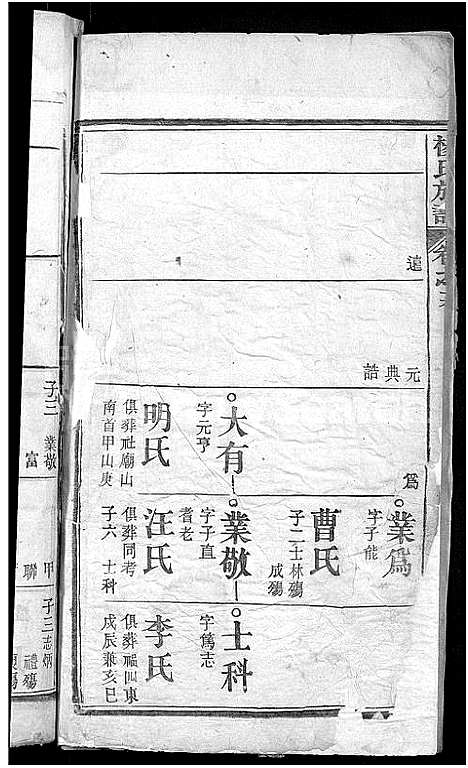 楊氏族譜
遠
元典誥
爲
業爲
字子能
曹氏
子二士林殤
成殤
大有
字元亨
明氏
俱葬社廟山
南首甲山庚
業敬
字子直
耆老
汪氏
俱葬同考
子六 士科
士科
字篤志
李氏
俱葬福四東
戍辰兼亥巳
子三 業敬
富
甲
聯
子三志炳
禮殤